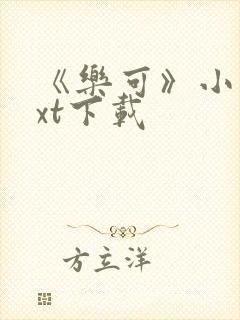 《樂可》小
xt下載
方立洋